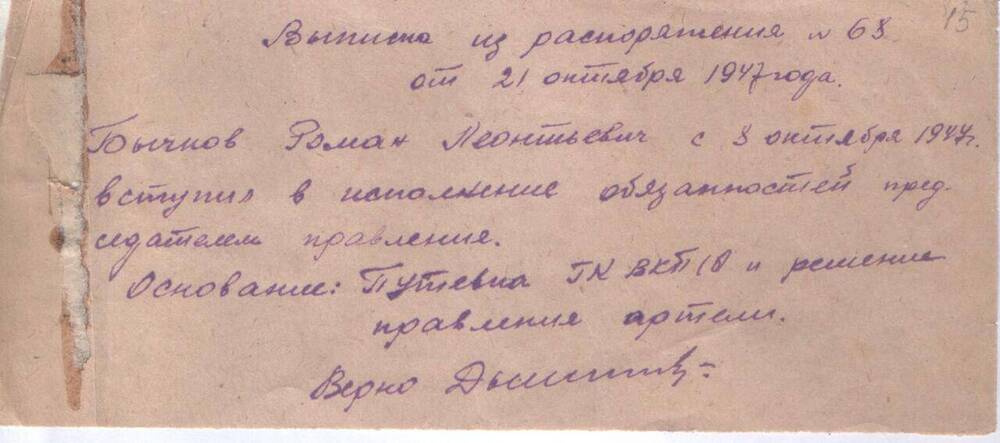 15
Выписка из распоряжения № 68
от 21 октября 1947 года.
Бычков Роман Леонтьевич с 8 октября 1947г.
вступил в исполнение обязанностей пред-
седателем правления.
Основание: Путевка ГК ВКП(б и решение
правления артели.
Верно